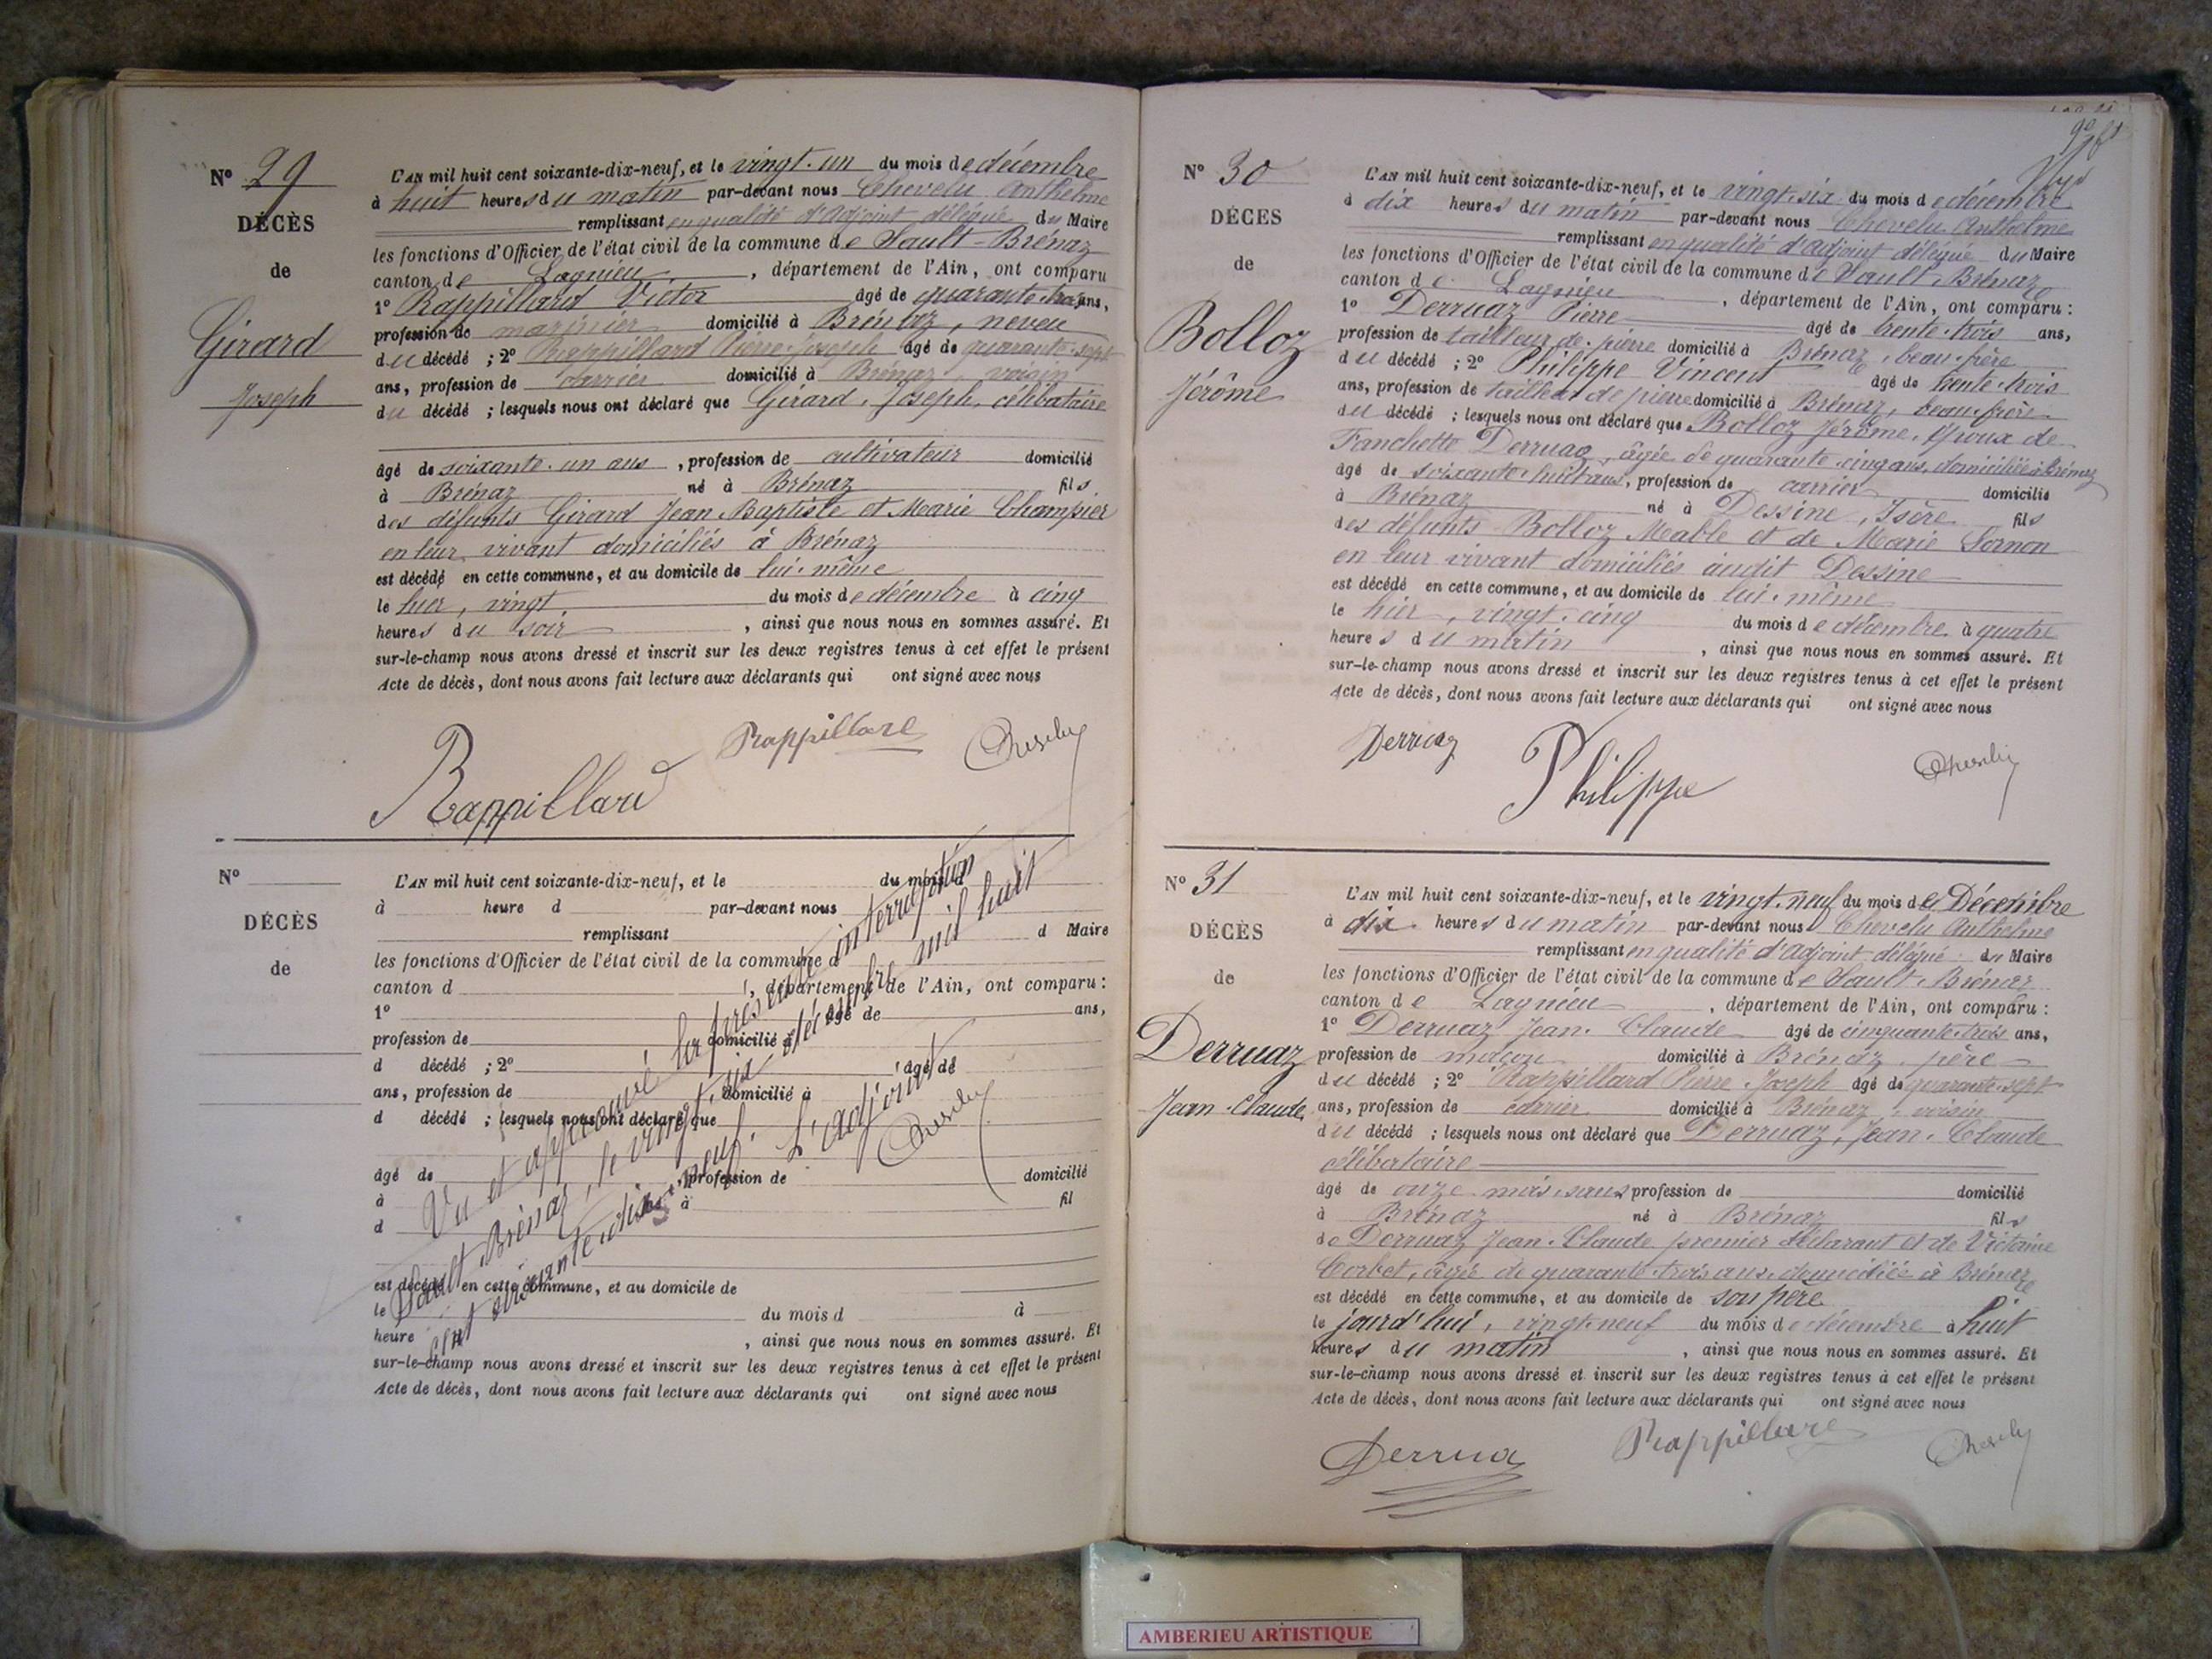 Nº 29
DÉCÈS
de
Girard
Joseph
L'AN mil huit cent soixante-dix-neuf, et le vingt-un du mois de décembre
à huit heures du matin par-devant nous Chevelu Anthelme
remplissant en qualité d'Adjoint délégué du Maire
les fonctions d'Officier de l'état civil de la commune de Sault-Brénaz
canton de Lagnieu, département de l'Ain, ont comparu
1º Rappillard Victor âgé de quarante-trois ans,
profession de marinier domicilié à Brénaz, neveu
du décédé ; 2º Rappillard Pierre-Joseph âgé de quarante-sept
ans, profession de carrier domicilié à Brénaz, voisin
du décédé ; lesquels nous ont déclaré que Girard, Joseph, célibataire
âgé de soixante-un ans, profession de cultivateur domicilié
à Brénaz né à Brénaz fils
des défunts Girard Jean Baptiste et Marie Champier
en leur vivant domiciliés à Brénaz
est décédé en cette commune, et au domicile de lui-même
le hier, vingt du mois de décembre à cinq
heures du soir, ainsi que nous nous en sommes assuré. Et
sur-le-champ nous avons dressé et inscrit sur les deux registres tenus à cet effet le présent
Acte de décès, dont nous avons fait lecture aux déclarants qui ont signé avec nous
Rappillard Rappillard Chevelu
Nº
DÉCÈS
de
L'AN mil huit cent soixante-dix-neuf, et le du mois d
à heure d par-devant nous
remplissant d Maire
les fonctions d'Officier de l'état civil de la commune d
canton d , département de l'Ain, ont comparu :
1º âgé de ans,
profession de domicilié à
d décédé ; 2º âgé de
ans, profession de domicilié à
d décédé ; lesquels nous ont déclaré que
âgé de , profession de domicilié
à à fil
d
est décédé en cette commune, et au domicile de
le du mois d à
heure , ainsi que nous nous en sommes assuré. Et
sur-le-champ nous avons dressé et inscrit sur les deux registres tenus à cet effet le présent
Acte de décès, dont nous avons fait lecture aux déclarants qui ont signé avec nous
Vu et approuvé la présente interruption
Sault-Brénaz, le vingt-six décembre mil huit
cent soixante-dix-neuf. L'adjoint
Chevelu
Nº 30
DÉCES
de
Bolloz
Jérôme
L'AN mil huit cent soixante-dix-neuf, et le vingt-six du mois de décembre
à dix heures du matin par-devant nous Chevelu Anthelme
remplissant en qualité d'adjoint délégué du Maire
les fonctions d'Officier de l'état civil de la commune de Sault-Brénaz
canton de Lagnieu, département de l'Ain, ont comparu :
1º Derruaz Pierre âgé de trente-trois ans,
profession de tailleur de pierre domicilié à Brénaz, beau-frère
du décédé ; 2º Philippe Vincent âgé de trente-trois
ans, profession de tailleur de pierre domicilié à Brénaz, beau-frère
du décédé ; lesquels nous ont déclaré que Bolloz Jérôme, époux de
Fanchette Derruaz, âgée de quarante-cinq ans, domiciliée à Brénaz
âgé de soixante-huit ans, profession de carrier domicilié
à Brénaz né à Dessine, Isère fils
des défunts Bolloz Meable et de Marie Sornon
en leur vivant domiciliés audit Dessine
est décédé en cette commune, et au domicile de lui-même
le hier, vingt-cinq du mois de décembre à quatre
heures du matin, ainsi que nous nous en sommes assuré. Et
sur-le-champ nous avons dressé et inscrit sur les deux registres tenus à cet effet le présent
Acte de décès, dont nous avons fait lecture aux déclarants qui ont signé avec nous
Derruaz Philippe Chevelu
Nº 31
DÉCÈS
de
Derruaz
Jean-Claude
L'AN mil huit cent soixante-dix-neuf, et le vingt-neuf du mois de Décembre
à dix heures du matin par-devant nous Chevelu Anthelme
remplissant en qualité d'Adjoint délégué du Maire
les fonctions d'Officier de l'état civil de la commune de Sault-Brénaz
canton de Lagnieu, département de l'Ain, ont comparu :
1º Derruaz Jean-Claude âgé de cinquante-trois ans,
profession de maçon domicilié à Brénaz, père
du décédé ; 2º Rappillard Pierre-Joseph âgé de quarante-sept
ans, profession de carrier domicilié à Brénaz, voisin
du décédé ; lesquels nous ont déclaré que Derruaz, Jean-Claude
célibataire
âgé de onze mois, sans profession de domicilié
à Brénaz né à Brénaz fils
de Derruaz Jean-Claude premier déclarant et de Victorine
Corbet, âgée de quarante-trois ans, domiciliée à Brénaz
est décédé en cette commune, et au domicile de son père
le jourd'hui, vingt-neuf du mois de décembre à huit
heures du matin, ainsi que nous nous en sommes assuré. Et
sur-le-champ nous avons dressé et inscrit sur les deux registres tenus à cet effet le présent
Acte de décès, dont nous avons fait lecture aux déclarants qui ont signé avec nous
Derruaz Rappillard Chevelu
AMBERIEU ARTISTIQUE